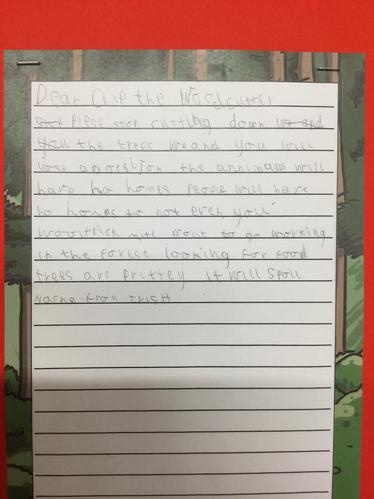 Dear Clie the Woodcutter
Plese stop cutting down
the trees We and you will
lose the animaus will
have no homes People will have
no homes to not even you
might want to go working
in the forest looking for food
trees are prittey it will spoil
nache from TRISH